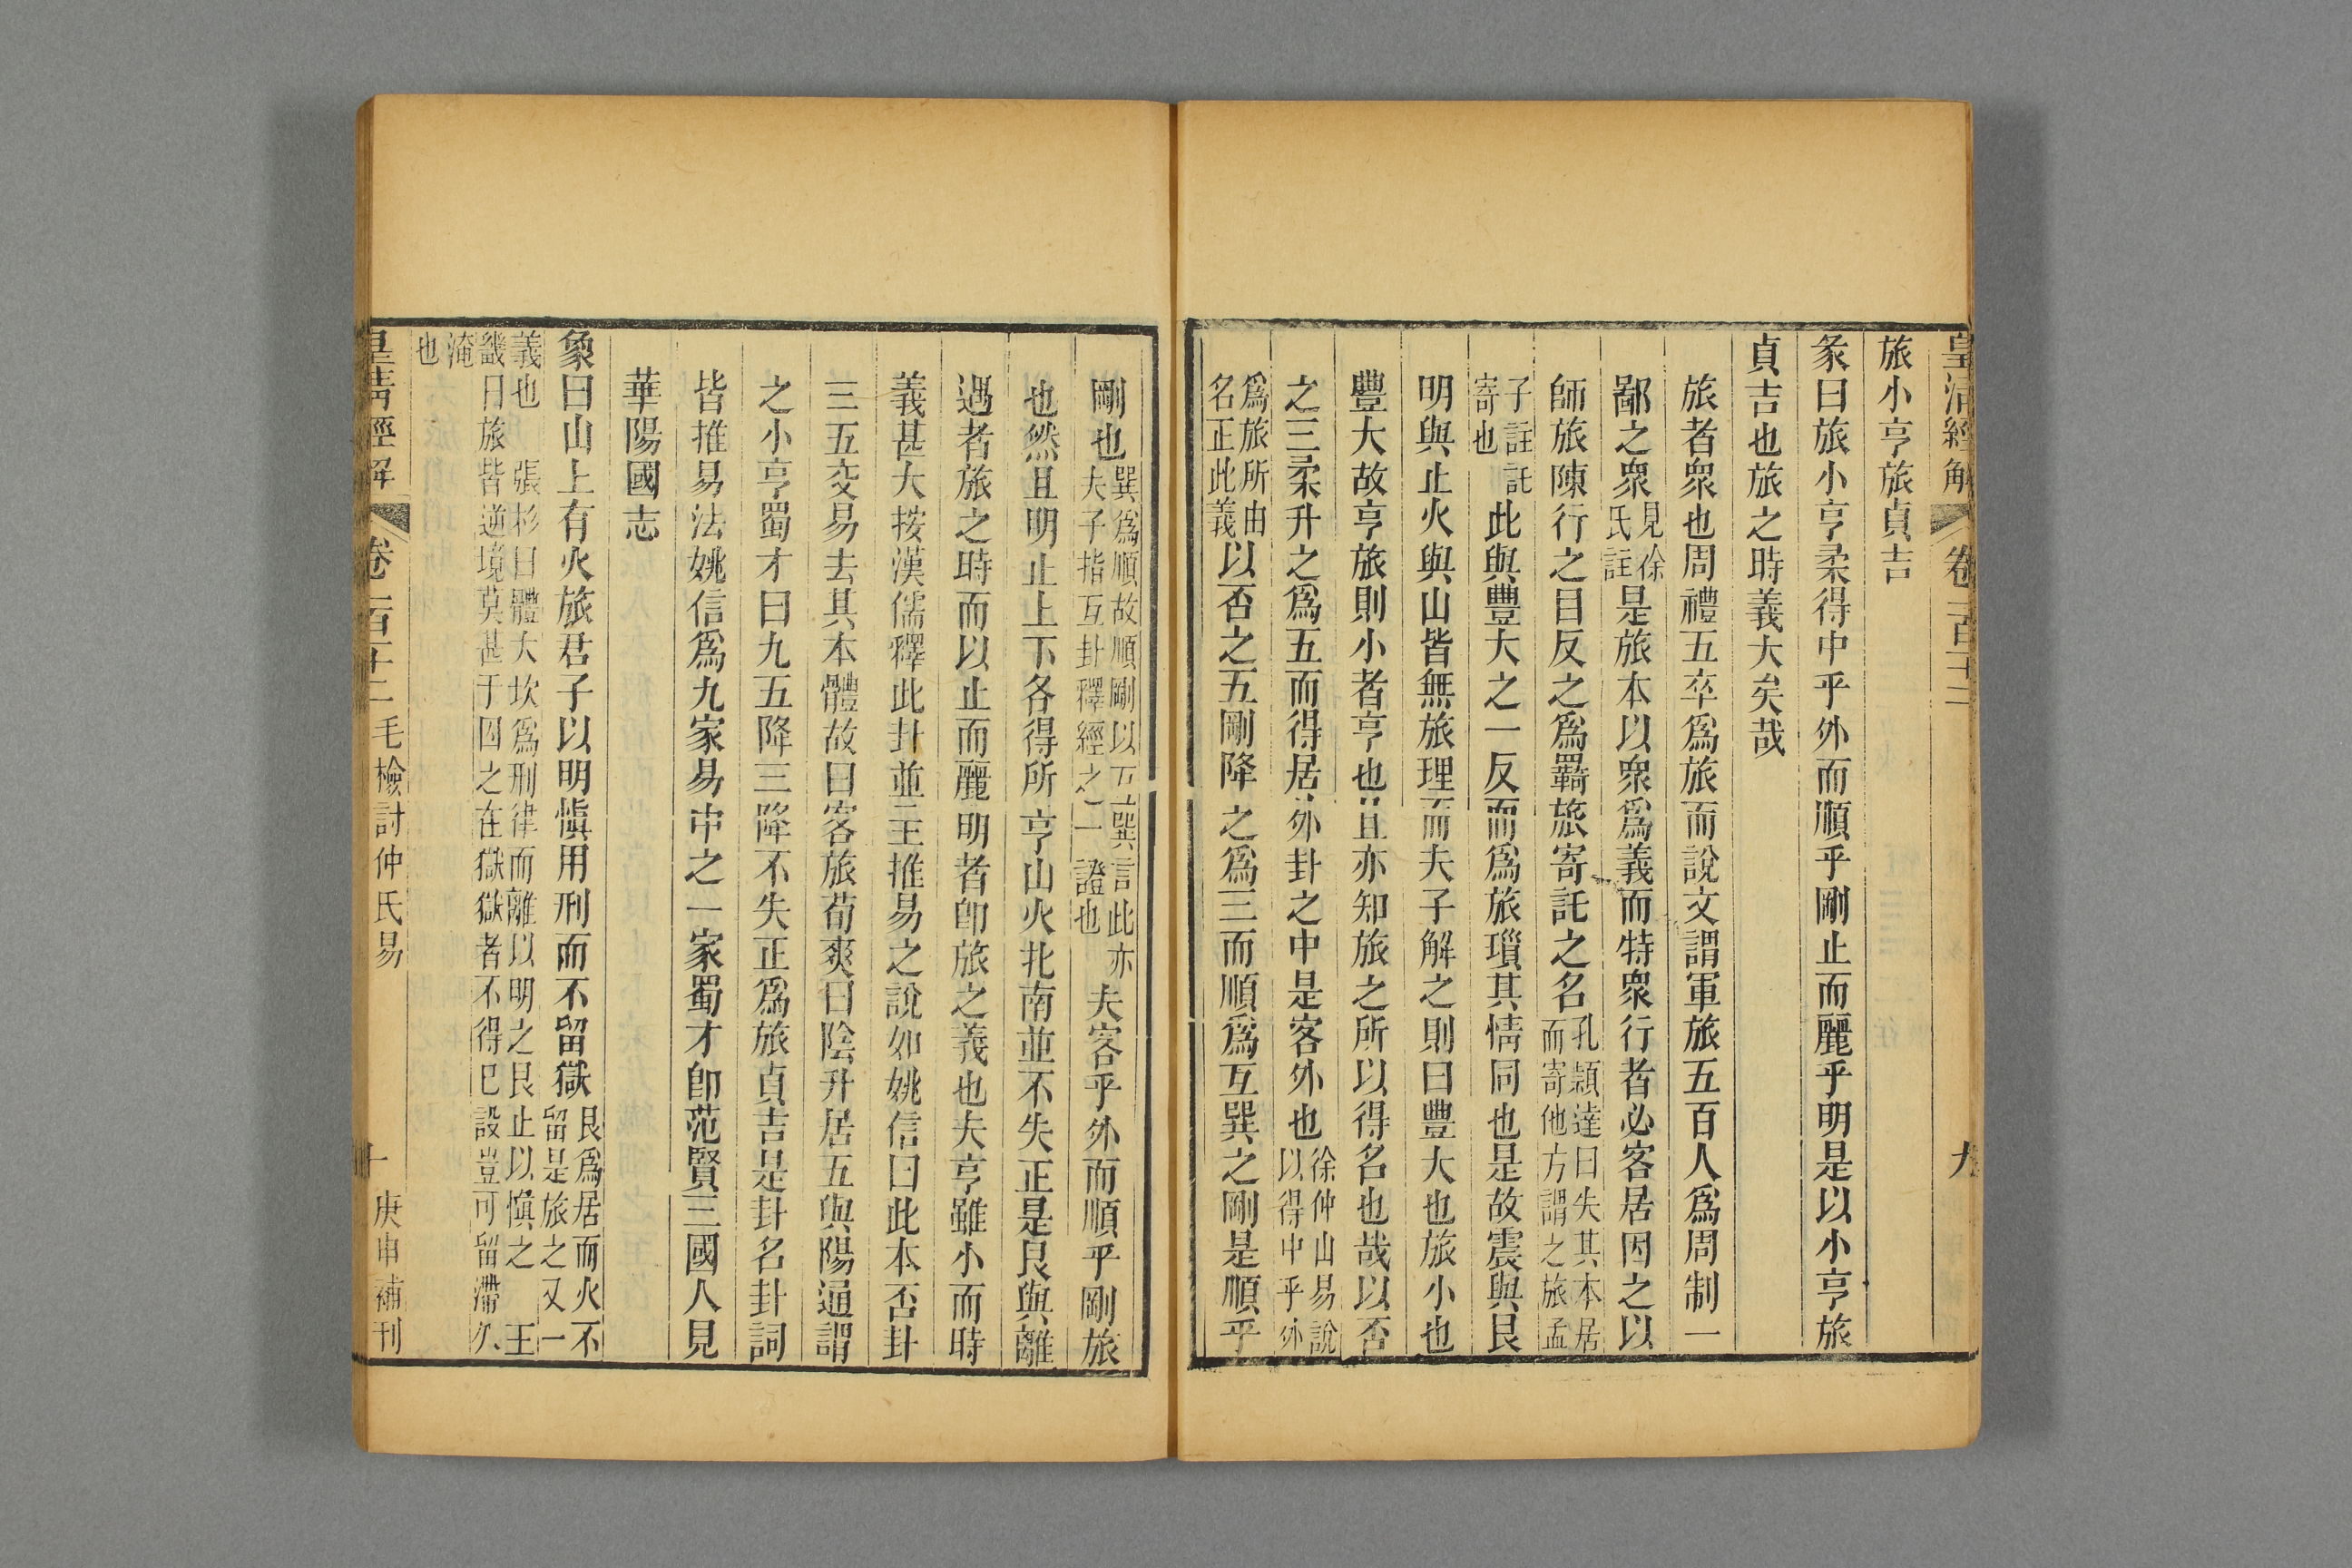 皇清經解 卷一百十二 九
旅小亨旅貞吉
彖曰旅小亨柔得中乎外而順乎剛止而麗乎明是以小亨旅
貞吉也旅之時義大矣哉
旅者衆也周禮五卒爲旅而說文謂軍旅五百人爲周制一
鄙之衆見徐氏註是旅本以衆爲義而特衆行者必客居因之以
師旅陳行之目反之爲羈旅寄託之名孔穎達曰失其本居而寄他方謂之旅孟
子註託寄也此與豐大之一反而爲旅瑣其情同也是故震與艮
明與止火與山皆無旅理而夫子解之則曰豐大也旅小也
豐大故亨旅則小者亨也且亦知旅之所以得名也哉以否
之三柔升之爲五而得居外卦之中是客外也徐仲山易說以得中乎外
爲旅所由名正此義以否之五剛降之爲三而順爲互巽之剛是順乎
剛也巽爲順故順剛以互巽言此亦夫子指互卦釋經之一證也夫客乎外而順乎剛旅
也然且明止上下各得所亨山火北南並不失正是艮與離
遇者旅之時而以止而麗明者卽旅之義也夫亨雖小而時
義甚大按漢儒釋此卦並主推易之說如姚信曰此本否卦
三五交易去其本體故曰客旅荀爽曰陰升居五與陽通謂
之小亨蜀才曰九五降三降不失正爲旅貞吉是卦名卦詞
皆推易法姚信爲九家易中之一家蜀才卽范賢三國人見
華陽國志
象曰山上有火旅君子以明愼用刑而不留獄艮爲居而火不留是旅之又一
義也 張杉曰體大坎爲刑律而離以明之艮止以愼之 王畿曰旅皆逆境莫甚于囚之在獄獄者不得已設豈可留滯久
淹也
皇清經解 卷一百十二 毛檢討仲氏易 十 庚申補刊